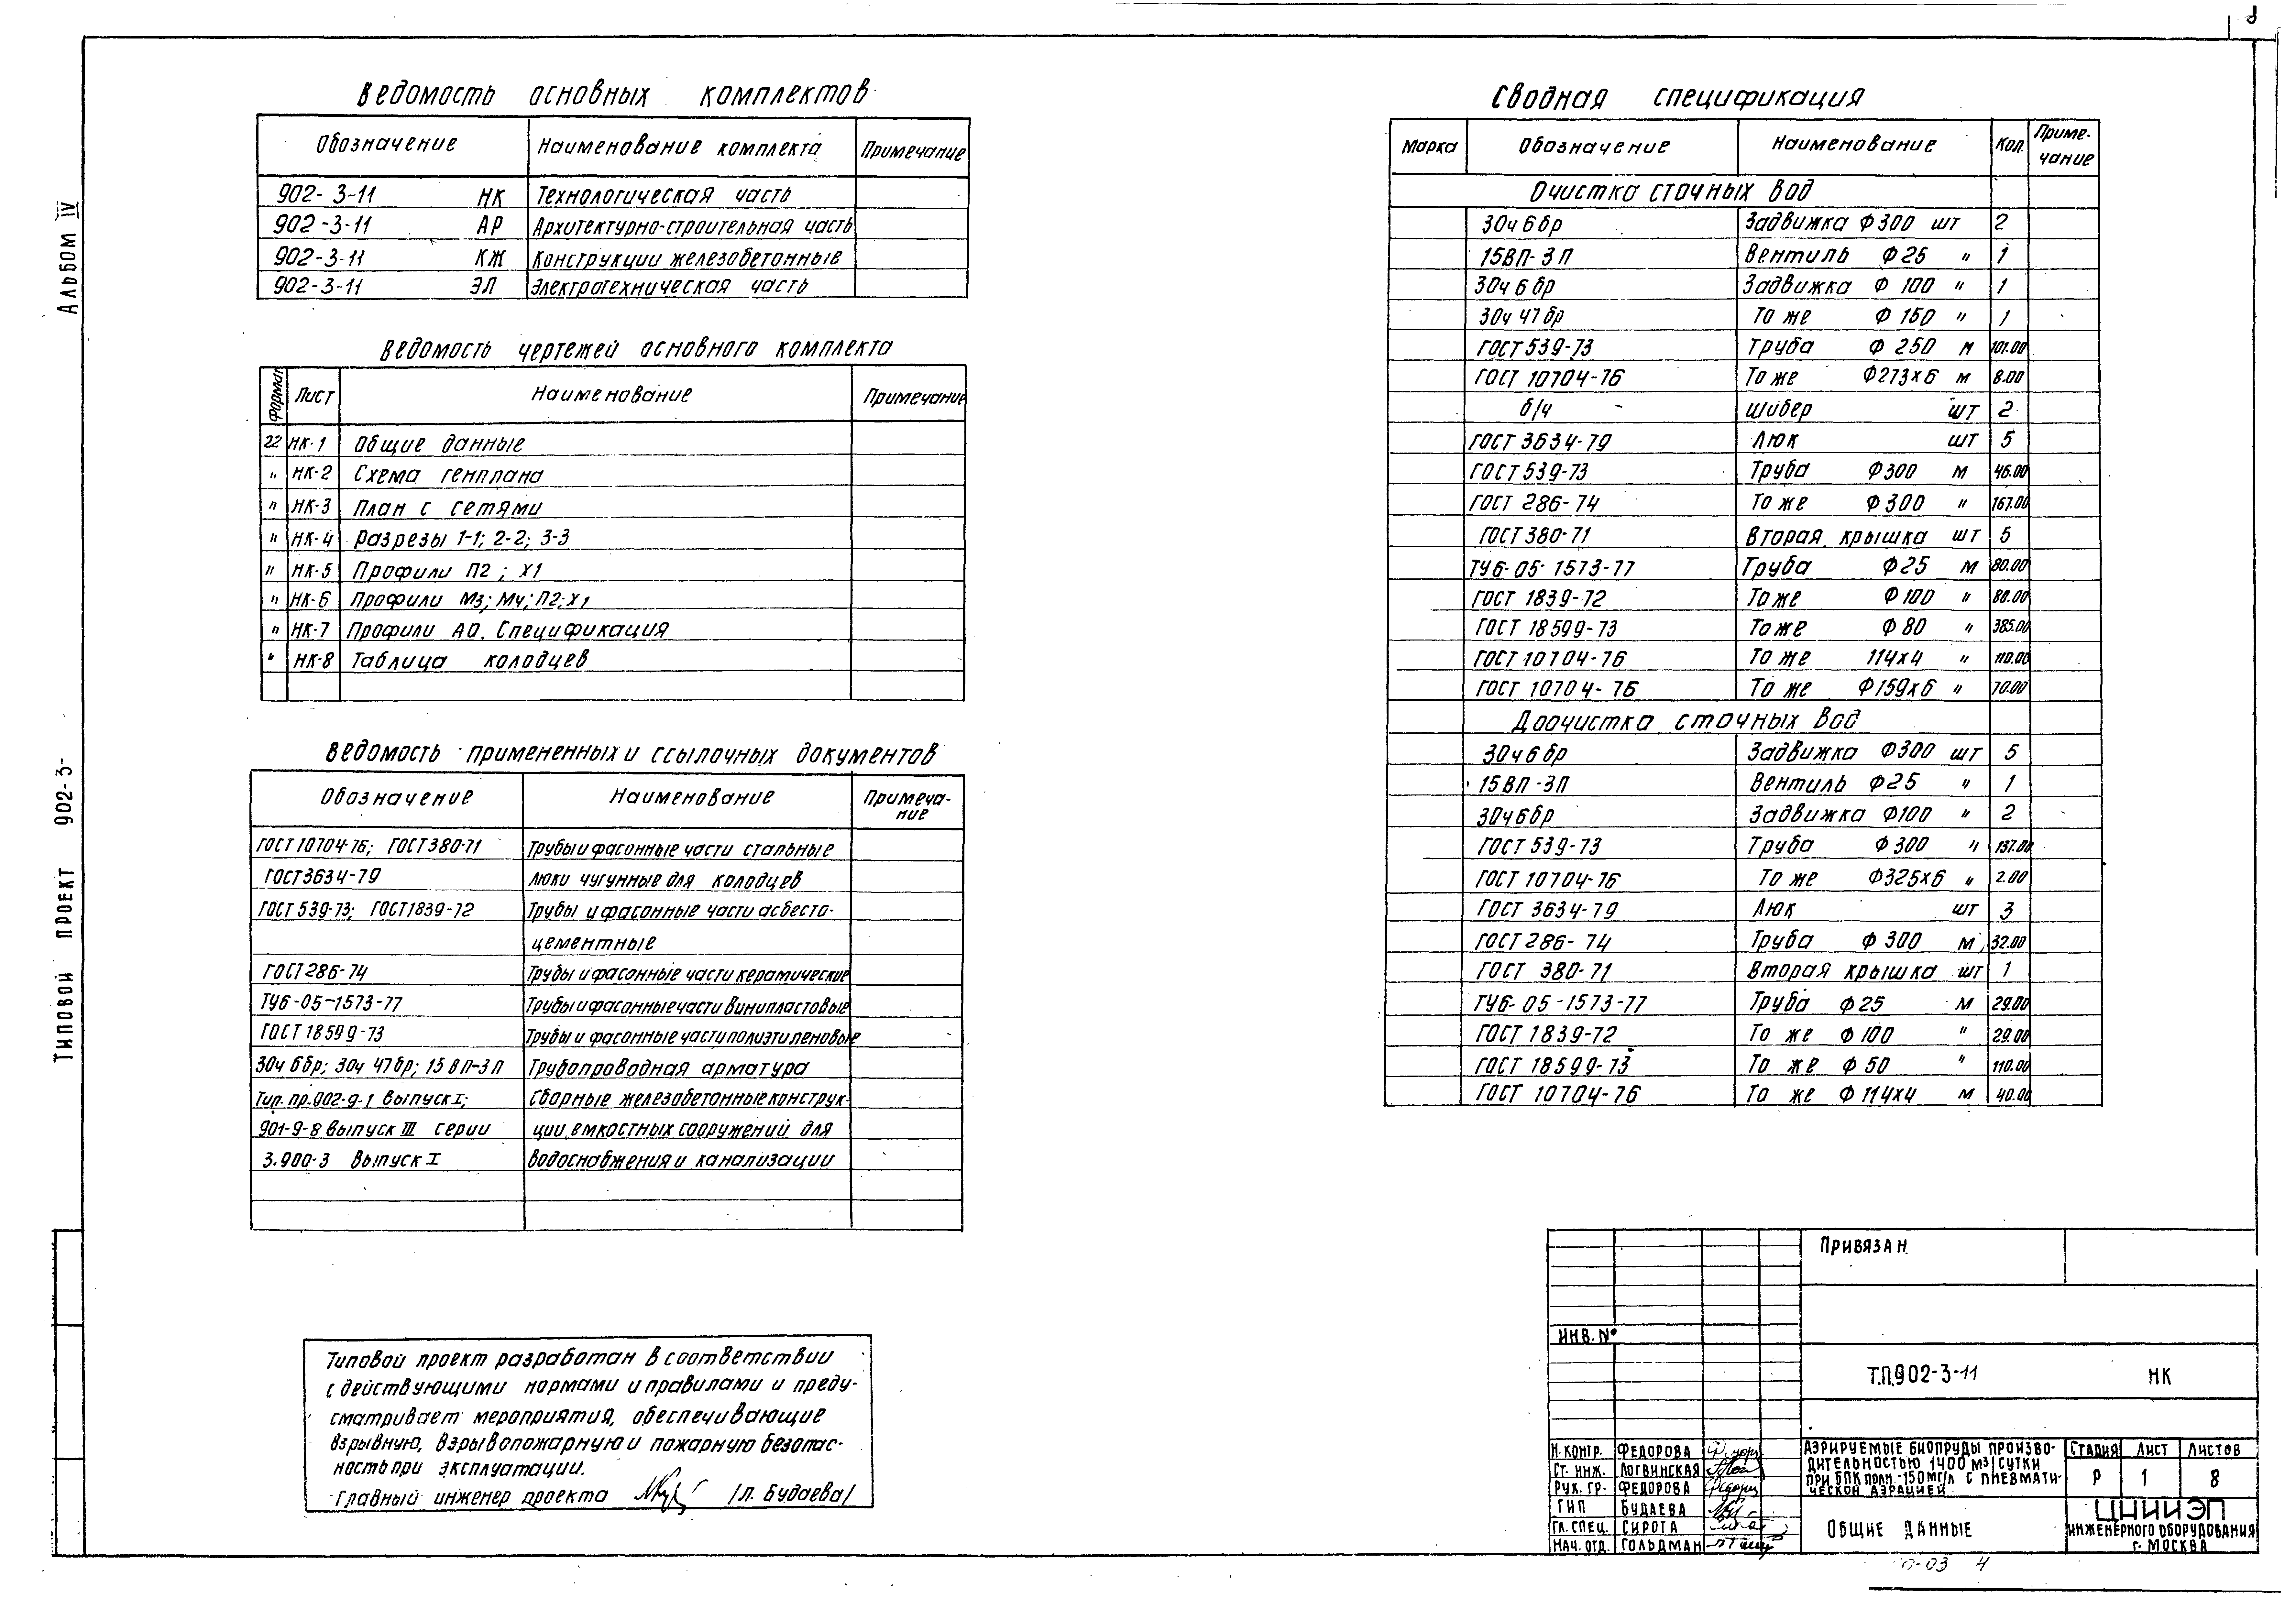 Альбом IV
Типовой проект 902-3-
Ведомость основных комплектов
Обозначение Наименование комплекта Примечание
902-3-11 НК Технологическая часть
902-3-11 АР Архитектурно-строительная часть
902-3-11 КЖ Конструкции железобетонные
902-3-11 ЭЛ Электротехническая часть
Ведомость чертежей основного комплекта
Формат Лист Наименование Примечание
22 НК-1 Общие данные
" НК-2 Схема генплана
" НК-3 План с сетями
" НК-4 Разрезы 1-1; 2-2; 3-3
" НК-5 Профили П2; Х1
" НК-6 Профили М3; М4; П2; Х1
" НК-7 Профили А0. Спецификация
" НК-8 Таблица колодцев
Ведомость примененных и ссылочных документов
Обозначение Наименование Примеча-
ние
ГОСТ 10704-76; ГОСТ 380-71 Трубы и фасонные части стальные
ГОСТ 3634-79 Люки чугунные для колодцев
ГОСТ 539-73; ГОСТ 1839-72 Трубы и фасонные части асбесто-
цементные
ГОСТ 286-74 Трубы и фасонные части керамические
ТУ6-05-1573-77 Трубы и фасонные части винипластовые
ГОСТ 18599-73 Трубы и фасонные части полиэтиленовые
30ч 6бр; 30ч 47бр; 15ВП-3П Трубопроводная арматура
Тип. пр. 902-9-1 Выпуск I; Сборные железобетонные конструк-
901-9-8 выпуск III серии ции емкостных сооружений для
3.900-3 Выпуск I водоснабжения и канализации
Типовой проект разработан в соответствии
с действующими нормами и правилами и преду-
сматривает мероприятия, обеспечивающие
взрывную, взрывопожарную и пожарную безопас-
ность при эксплуатации.
Главный инженер проекта /Л. Будаева/
Сводная спецификация
Марка Обозначение Наименование Кол. Приме-
чание
Очистка сточных вод
30ч 6бр Задвижка Ф300 шт 2
15ВП-3П Вентиль Ф25 " 1
30ч 6бр Задвижка Ф100 " 1
30ч 47бр То же Ф150 " 1
ГОСТ 539-73 Труба Ф250 м 101.00
ГОСТ 10704-76 То же Ф273х6 м 8.00
б/ч - Шибер шт 2
ГОСТ 3634-79 Люк шт 5
ГОСТ 539-73 Труба Ф300 м 46.00
ГОСТ 286-74 То же Ф300 " 167.00
ГОСТ 380-71 Вторая крышка шт 5
ТУ6-05-1573-77 Труба Ф25 м 80.00
ГОСТ 1839-72 То же Ф100 " 80.00
ГОСТ 18599-73 То же Ф80 " 385.00
ГОСТ 10704-76 То же 114х4 " 110.00
ГОСТ 10704-76 То же Ф159х6 " 70.00
Доочистка сточных вод
30ч 6бр Задвижка Ф300 шт 5
15ВП-3П Вентиль Ф25 " 1
30ч 6бр Задвижка Ф100 " 2
ГОСТ 539-73 Труба Ф300 " 137.00
ГОСТ 10704-76 То же Ф325х6 " 2.00
ГОСТ 3634-79 Люк шт 3
ГОСТ 286-74 Труба Ф300 м 32.00
ГОСТ 380-71 Вторая крышка шт 1
ТУ6-05-1573-77 Труба Ф25 м 29.00
ГОСТ 1839-72 То же Ф100 " 29.00
ГОСТ 18599-73 То же Ф50 " 110.00
ГОСТ 10704-76 То же Ф114х4 м 40.00
Привязан
Инв. №
Т.П.902-3-11 НК
Н. контр. Федорова
Ст. инж. Логвинская
Рук. гр. Федорова
ГИП Будаева
Гл. спец. Сирота
Нач. отд. Гольдман
Аэрируемые биопруды произво-
дительностью 1400 м3/сутки
при БПК полн.-150мг/л с пневмати-
ческой аэрацией
Стадия Лист Листов
Р 1 8
Общие данные
ЦНИИЭП
инженерного оборудования
г. Москва